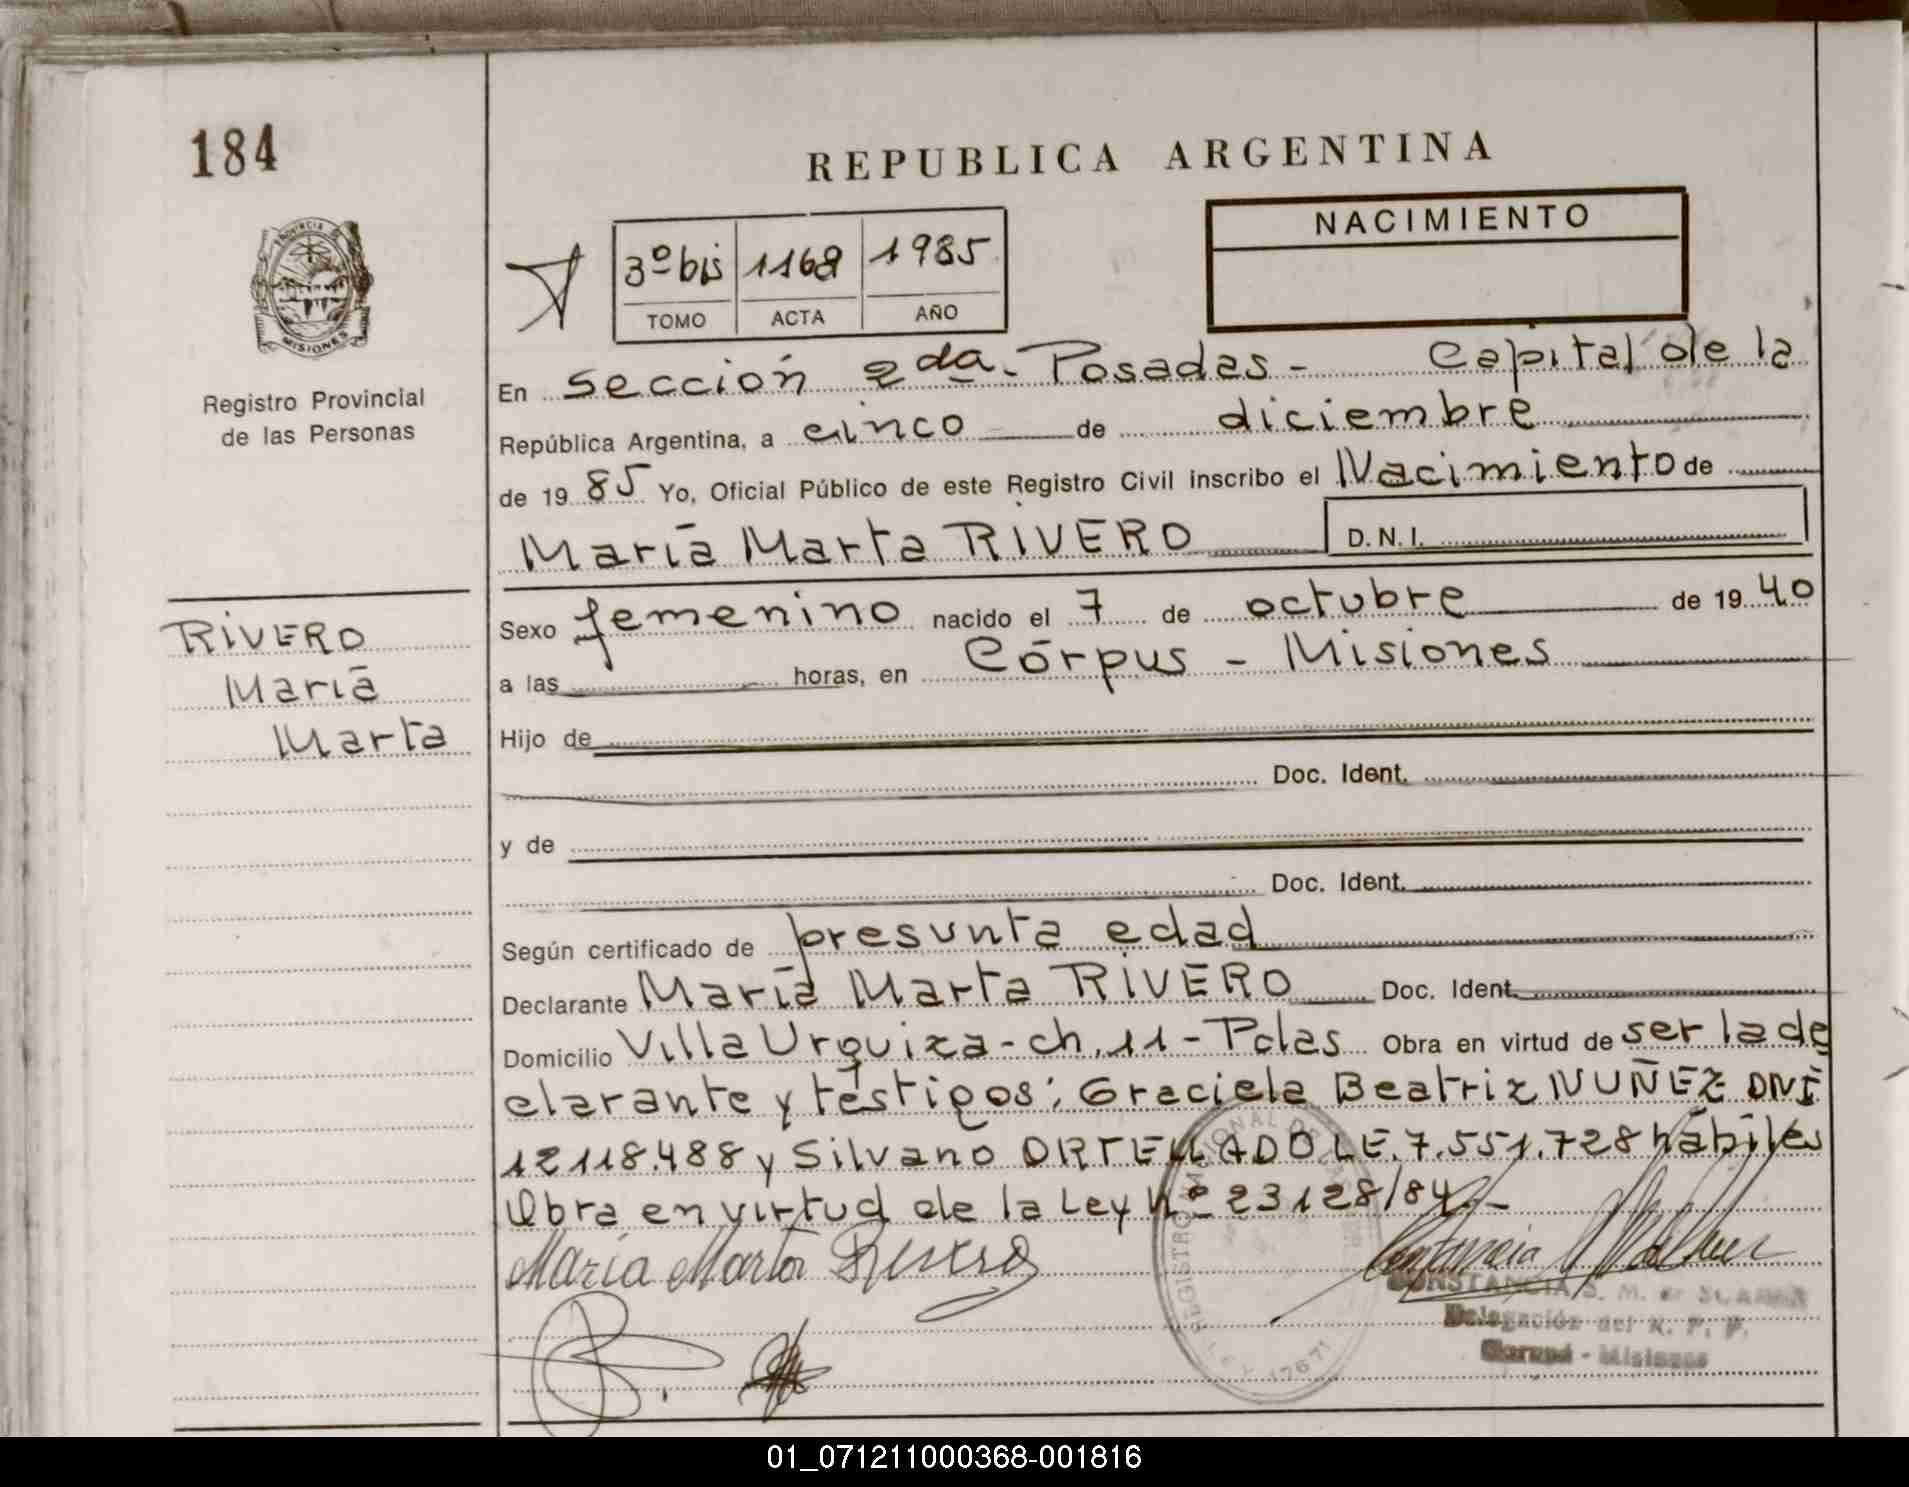 184
REPUBLICA ARGENTINA
NACIMIENTO
3º bis 1168 1985
TOMO ACTA AÑO
PROVINCIA DE
MISIONES
Registro Provincial
de las Personas
En Sección 2da. Posadas - Capital de la
República Argentina, a cinco de diciembre
de 1985 Yo, Oficial Público de este Registro Civil inscribo el Nacimiento de
María Marta RIVERO D.N.I.
RIVERO
María
Marta
Sexo femenino nacido el 7 de octubre de 1940
a las horas, en Córpus - Misiones
Hijo de
Doc. Ident.
y de
Doc. Ident.
Según certificado de presunta edad
Declarante María Marta RIVERO Doc. Ident.
Domicilio Villa Urquiza - ch. 11 - Pdas Obra en virtud de ser la de
clarante y testigos: Graciela Beatriz NUÑEZ DNI
12118.488 y Silvano ORTELLADO LE. 7.551.728 hábiles
Obra en virtud de la Ley Nº 23128/84.-
María Marta Rivero
CONSTANCIA S. M. de
Delegación del R. P. P.
Misiones
REGISTRO NACIONAL DE LAS
LEY 17671
01_071211000368-001816